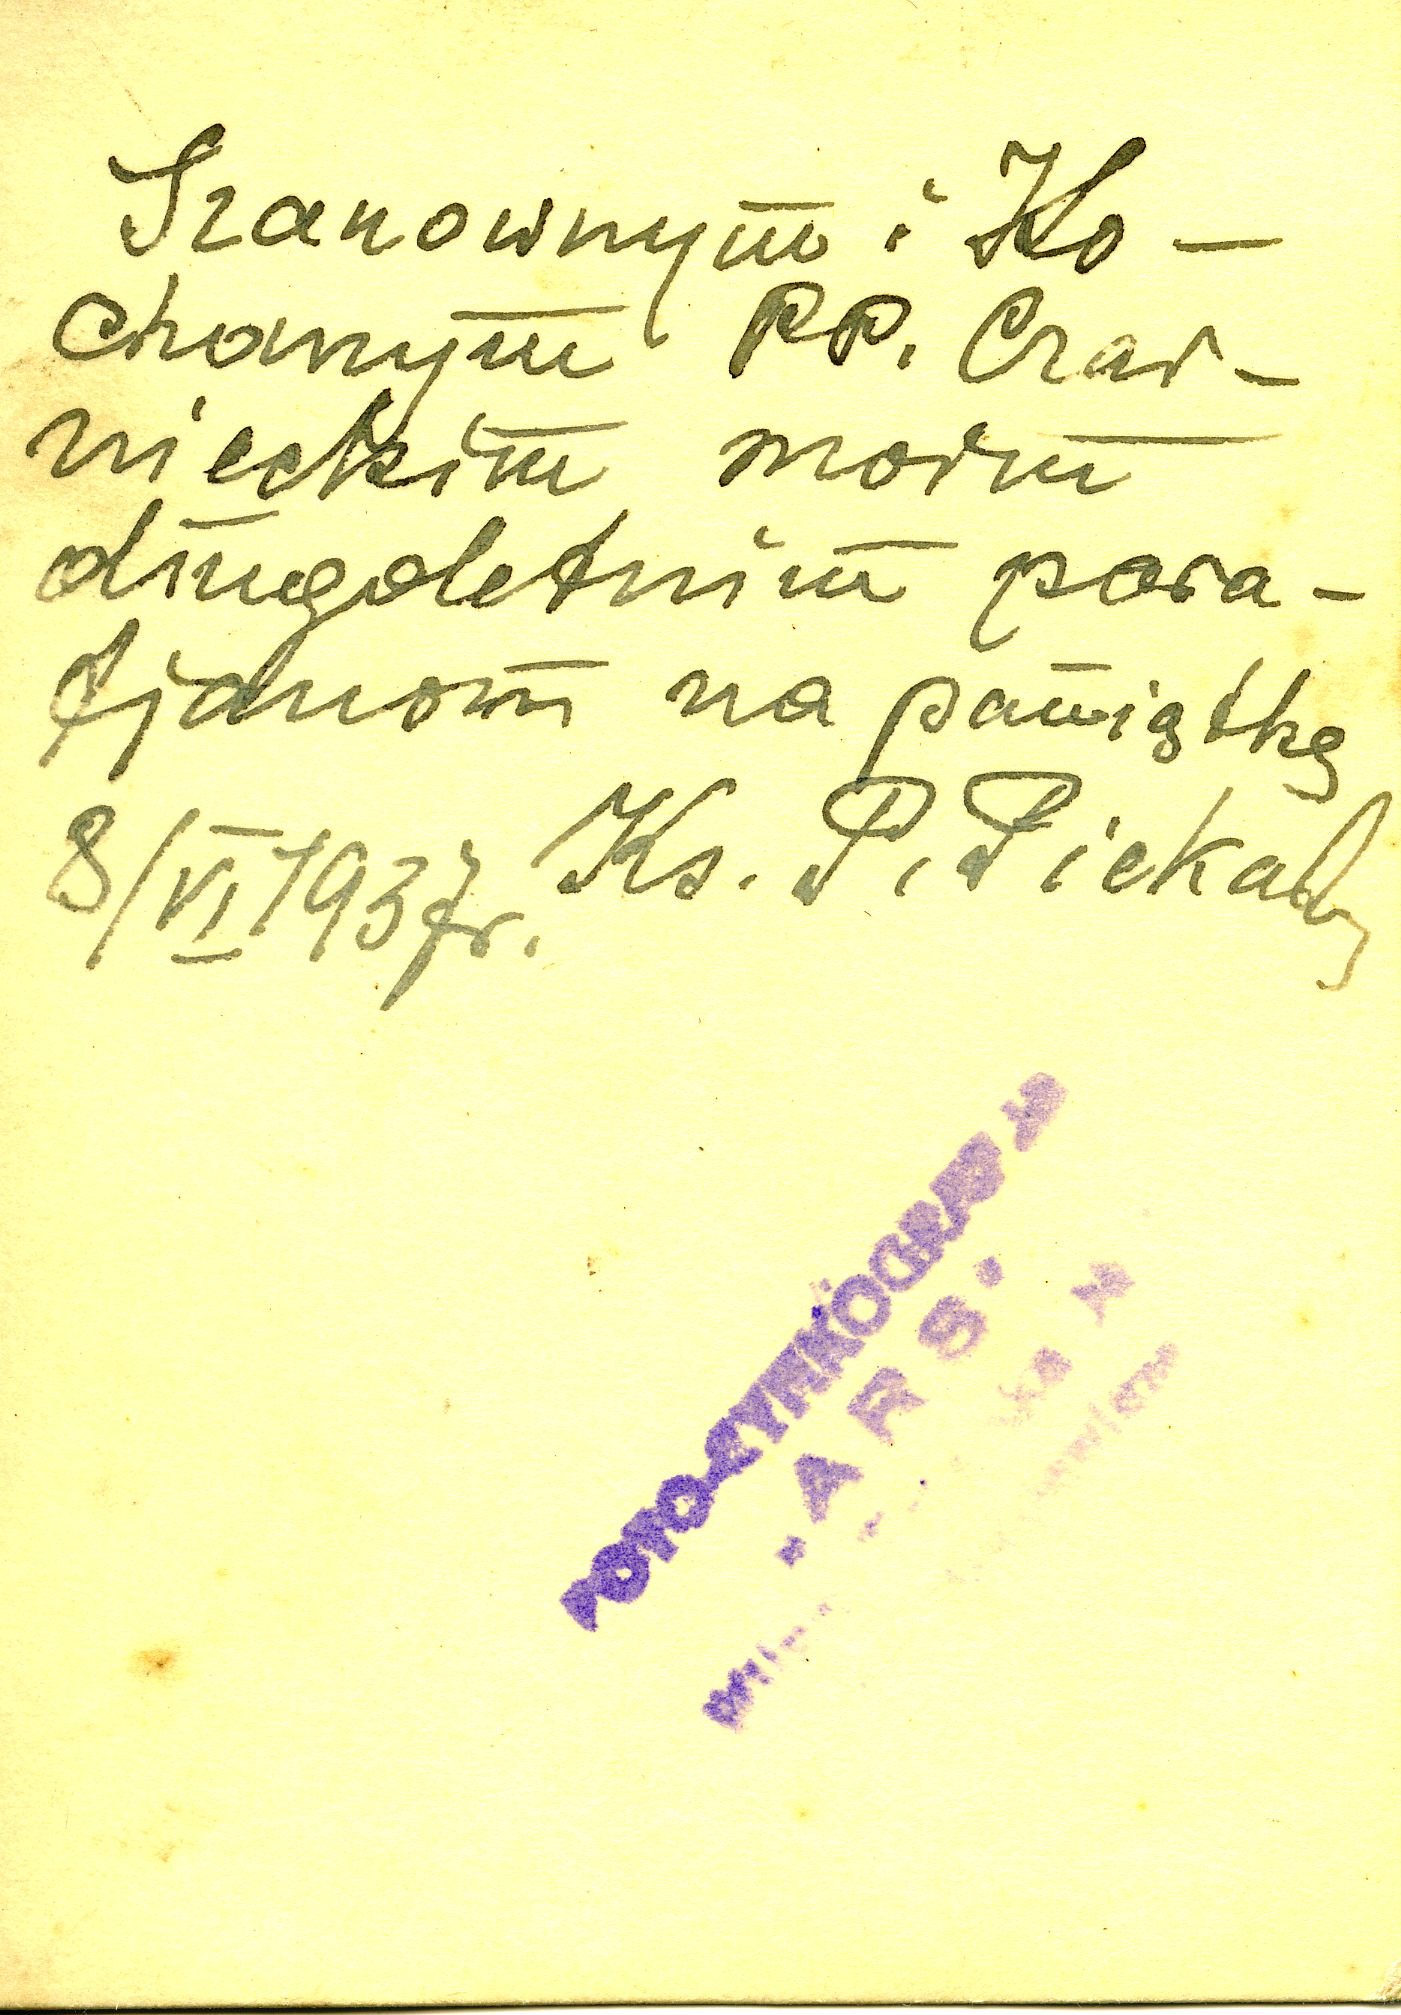 Szanownym i Ko-
chanym PP. Czar-
nieckim moim
długoletnim para-
fjanom na pamiątkę
8/VI 1937 r. Ks. P. Piekarz
FOTO-CYNKOGRAFJA
"ARS"